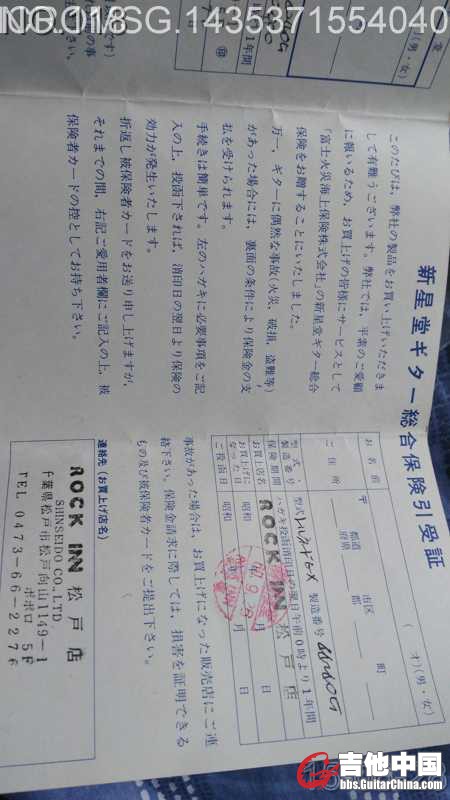 NO.018SG.1435371554040
1年間
(男・女)
新星堂ギター総合保険引受証
このたびは、弊社の製品をお買い上げいただきま
して有難うございます。弊社では、平素のご愛顧
に報いるため、お買上げの皆様にサービスとして
「富士火災海上保険株式会社」の新星堂ギター総合
保険をお贈することにいたしました。
万一、ギターに偶然な事故(火災、破損、盗難等)
があった場合には、裏面の条件により保険金の支
払を受けられます。
手続きは簡単です。左のハガキに必要事項をご記
入の上、投函下されば、消印日の翌日より保険の
効力が発生いたします。
折返し被保険者カードをお送り申し上げますが、
それまでの間、右記ご愛用者欄にご記入の上、被
保険者カードの控としてお持ち下さい。
お名前
(才)(男・女)
ご住所
〒
都道
府県
市区
郡
町
型式・
製造番号
型式
製造番号
保険期間
ハガキ投函消印日の翌日午前0時より1年間
お買上店名
ROCK INN 松戸店
お買上に
なった日
昭和
年
月
日
ご投函日
昭和
年
月
日
事故があった場合は、お買上げになった販売店にご連
絡下さい。保険金請求に際しては、損害を証明できる
もの及び被保険者カードをご提出下さい。
連絡先(お買上げ店名)
ROCK INN 松戸店
SHINSEIDO CO.,LTD.
千葉県松戸市松戸向山1149-1
ボボロ 5F
TEL 0473-66-2276
吉他中国
bbs.GuitarChina.com